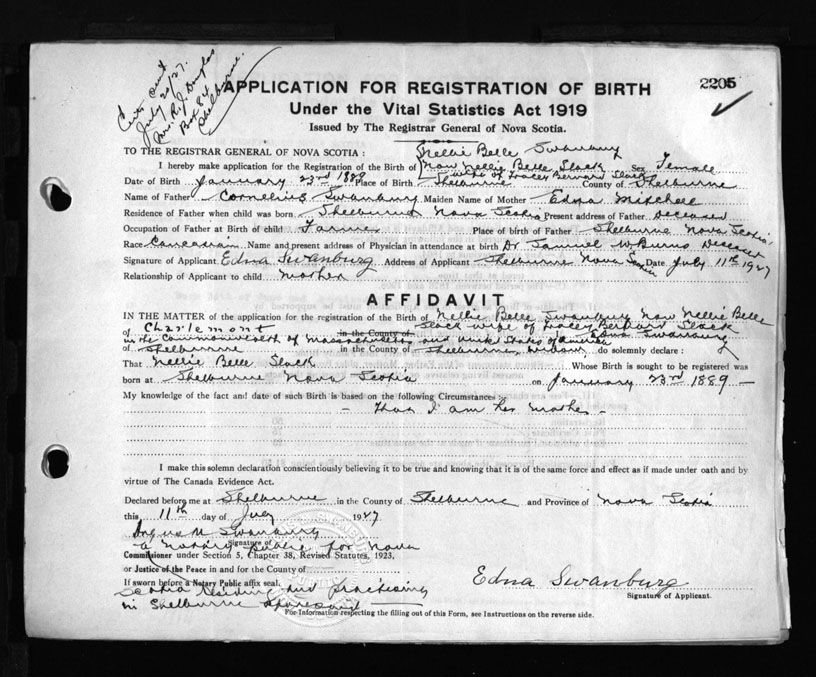 Cert sent
July 20/27.
Mrs. R. J. Douglas
Box 84
Shelburne.
2205
APPLICATION FOR REGISTRATION OF BIRTH
Under the Vital Statistics Act 1919
Issued by The Registrar General of Nova Scotia.
TO THE REGISTRAR GENERAL OF NOVA SCOTIA : Nellie Belle Swanburg
I hereby make application for the Registration of the Birth of Now Nellie Belle Slack Sex Female
wife of Tracey Bernard Slack
Date of Birth January 23rd 1889 Place of Birth Shelburne County of Shelburne
Name of Father Cornelius Swanburg Maiden Name of Mother Edna Mitchell
Residence of Father when child was born Shelburne Nova Scotia Present address of Father Deceased
Occupation of Father at Birth of child Farmer Place of birth of Father Shelburne Nova Scotia
Race Canadian Name and present address of Physician in attendance at birth Dr Samuel W Burns Deceased
Signature of Applicant Edna Swanburg Address of Applicant Shelburne Nova Scotia Date July 11th 1927
Relationship of Applicant to child mother
AFFIDAVIT
IN THE MATTER of the application for the registration of the Birth of Nellie Belle Swanburg Now Nellie Belle
of Charlemont in the County of Slack wife of Tracey Bernard Slack
in the Commonwealth of Massachusetts and United States of America Edna Swanburg
of Shelburne in the County of Shelburne, widow do solemnly declare :
That Nellie Belle Slack Whose Birth is sought to be registered was
born at Shelburne Nova Scotia on January 23rd 1889 -
My knowledge of the fact and date of such Birth is based on the following Circumstances :-
- That I am her mother -
I make this solemn declaration conscientiously believing it to be true and knowing that it is of the same force and effect as if made under oath and by
virtue of The Canada Evidence Act.
Declared before me at Shelburne in the County of Shelburne and Province of Nova Scotia
this 11th day of July 1927
Angus M Swanburg
Signature of
a Notary Public for Nova
Commissioner under Section 5, Chapter 38, Revised Statutes, 1923,
or Justice of the Peace in and for the County of
If sworn before a Notary Public affix seal.
Scotia residing and practising
in Shelburne aforesaid
Edna Swanburg
Signature of Applicant.
For Information respecting the filling out of this Form, see Instructions on the reverse side.